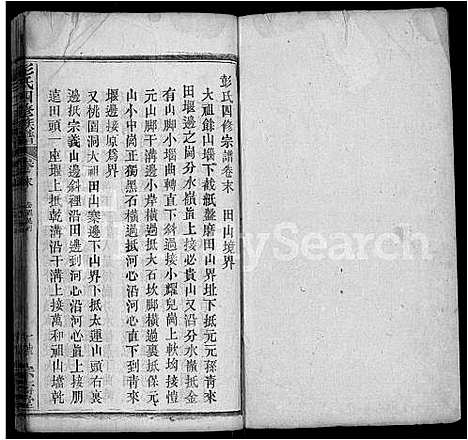 彭氏四修宗譜卷末　田山境界
大祖餘山墈下截紙盤磨田山界址下抵元元孫青來
田堰邊之崗分水嶺直上又沿分水嶺抵金
元山脚干溝邊小岸橫過抵大石坎脚橫過裏抵保元
山脚小塯曲轉直下斜過接小耀兒崗上軟均接愷
山小中崗正獨黑石橫過抵河心沿河心直下到青來
堰邊接原爲界
又桃園洞大祖田山寨邊下山界小抵太運山頭右裏
邊抵宗義山邊斜裡沿田邊到河心沿河心直上接朋
遠田頭一座堰上抵乾溝沿干溝上接萬和祖山墻乾
彭氏四修族譜
FamilySearch